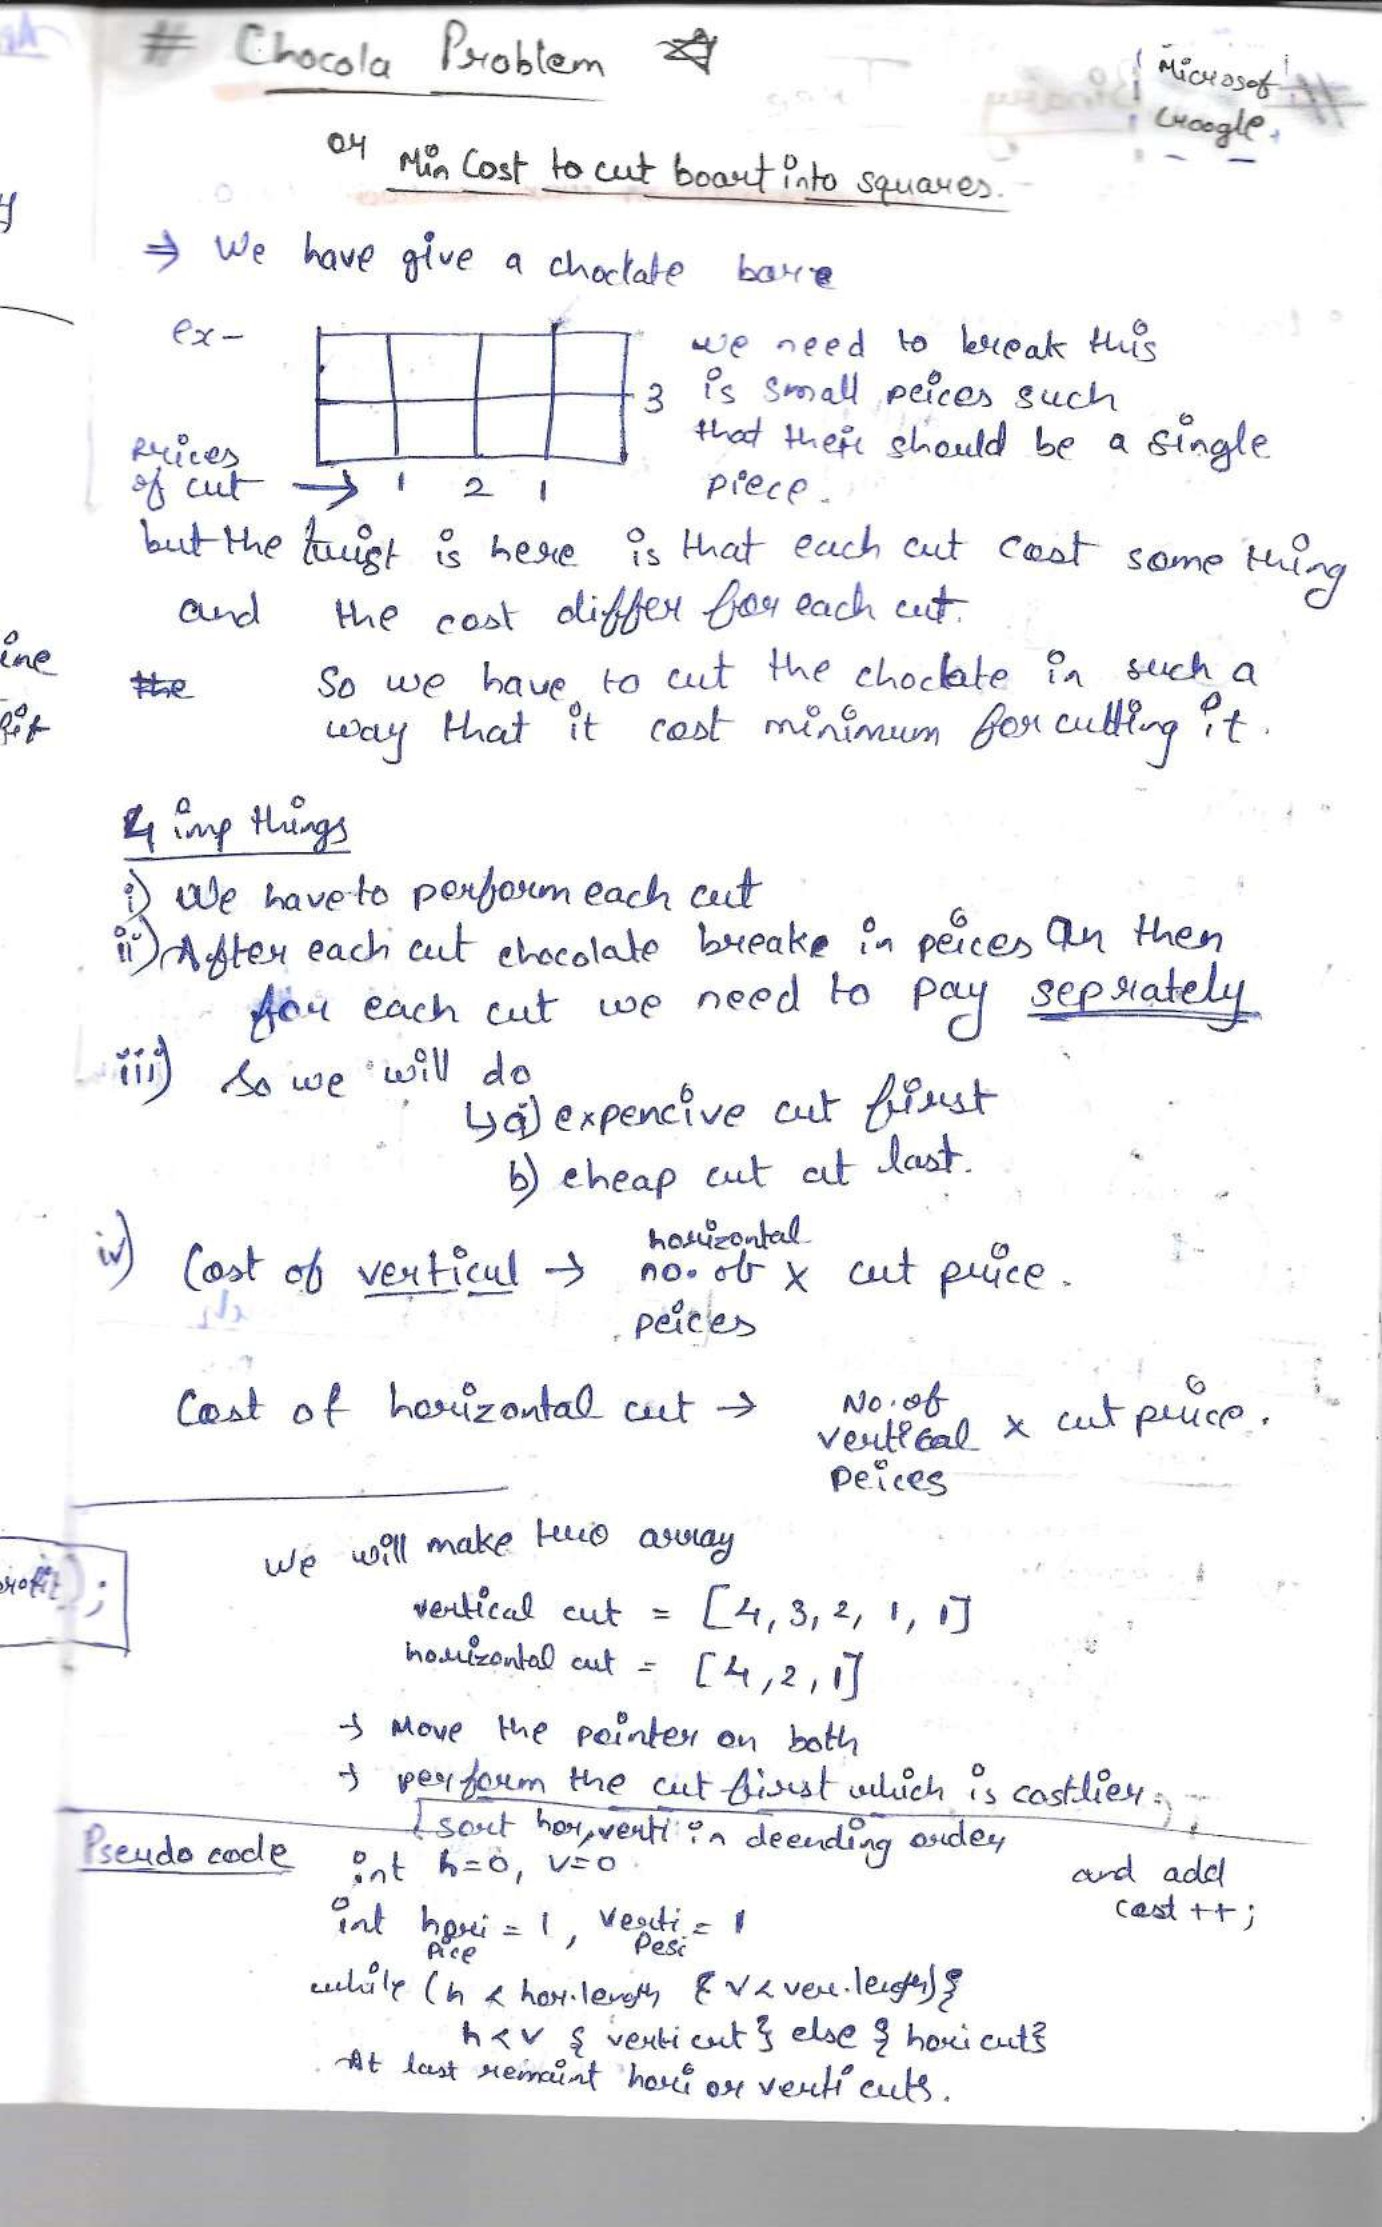 # Chocola Problem
Microsof
Google.
or Min Cost to cut boart into squares.
⇒ We have give a choclate bare
ex-
we need to break this
3 is small peices such
that their should be a single
piece.
Prices
of cut → 1 2 1
but the twist is here is that each cut cost some thing
and the cost differ for each cut.
the So we have to cut the choclate in such a
way that it cost minimum for cutting it.
4 imp things
i) We have to perform each cut
ii) After each cut chocolate breake in peices an then
for each cut we need to pay seprately
iii) So we will do
↳ a) expencive cut first
b) cheap cut at last.
iv) Cost of vertical → horizontal
no. of x cut price.
peices
Cost of horizontal cut → No. of
vertical x cut price.
Peices
We will make two array
vertical cut = [4, 3, 2, 1, 1]
horizontal cut = [4, 2, 1]
→ Move the pointer on both
→ perform the cut first which is costlier.
and add
cost ++;
Pseudo code
sort hor, verti in deending order
int h=0, v=0
int hori = 1, Verti = 1
Pice Pesi
while (h < hor.length & v < ver.length) {
h < v { verti cut } else { hori cut }
At last remaint hori or verti cuts.
ine
fit
profit);
y